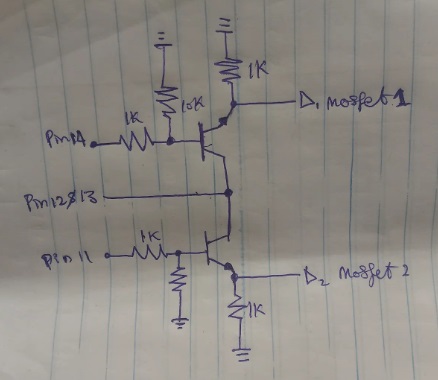 1K
10K
1K
D1 Mosfet 1
Pin14
Pin12&13
1K
Pin 11
D2 Mosfet 2
1K